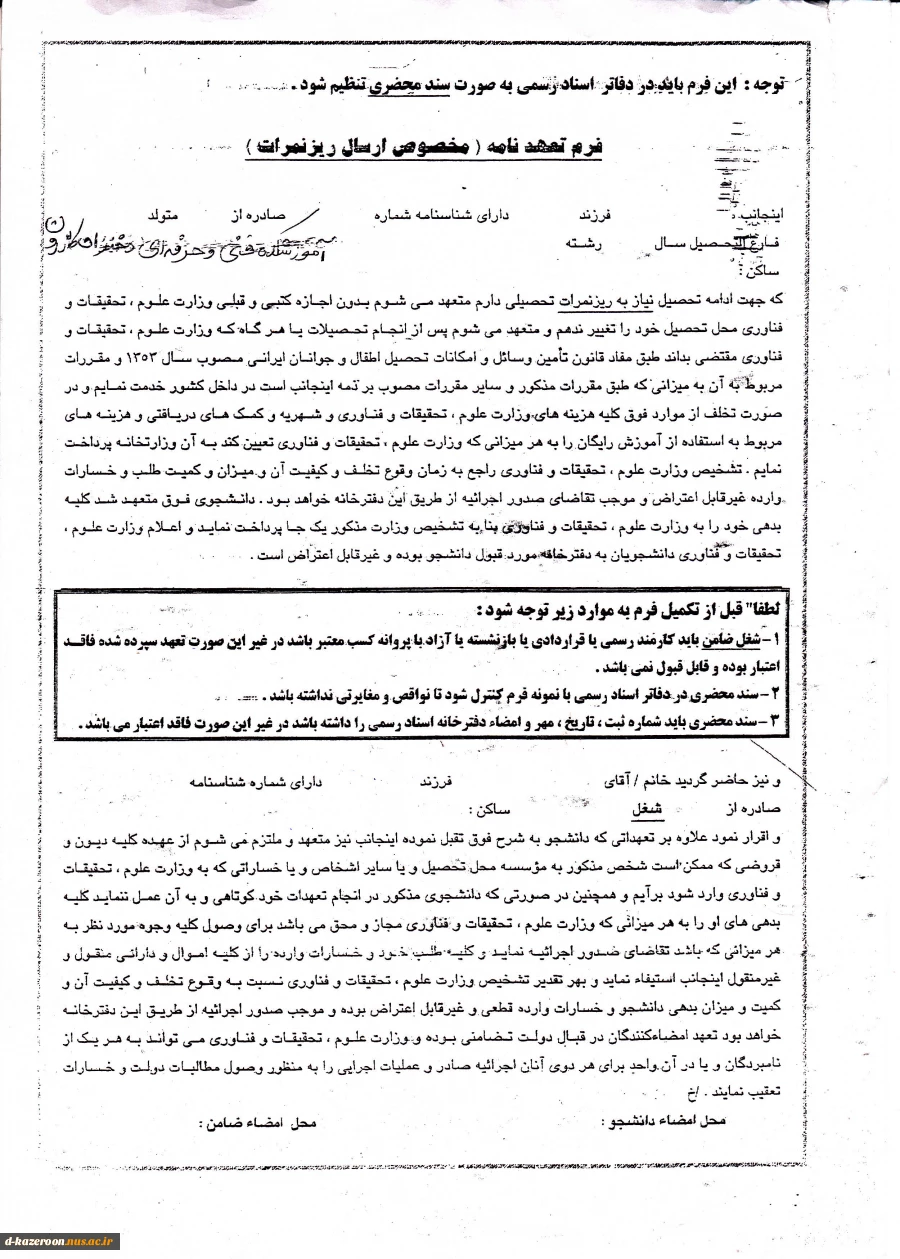 توجه : این فرم باید در دفاتر اسناد رسمی به صورت سند محضری تنظیم شود .
فرم تعهد نامه ( مخصوص ارسال ریزنمرات )
اینجانب فرزند دارای شناسنامه شماره صادره از متولد
فارغ التحصیل سال رشته آموزشکده فنی و حرفه‌ای دختران کازرون
ساکن :
که جهت ادامه تحصیل نیاز به ریزنمرات تحصیلی دارم متعهد می شوم بدون اجازه کتبی و قبلی وزارت علوم ، تحقیقات و
فناوری محل تحصیل خود را تغییر ندهم و متعهد می شوم پس از انجام تحصیلات یا هر گاه که وزارت علوم ، تحقیقات و
فناوری مقتضی بداند طبق مفاد قانون تأمین وسائل و امکانات تحصیل اطفال و جوانان ایرانی مصوب سال ۱۳۵۳ و مقررات
مربوط به آن به میزانی که طبق مقررات مذکور و سایر مقررات مصوب بر ذمه اینجانب است در داخل کشور خدمت نمایم و در
صورت تخلف از موارد فوق کلیه هزینه های وزارت علوم ، تحقیقات و فناوری و شهریه و کمک های دریافتی و هزینه های
مربوط به استفاده از آموزش رایگان را به هر میزانی که وزارت علوم ، تحقیقات و فناوری تعیین کند به آن وزارتخانه پرداخت
نمایم . تشخیص وزارت علوم ، تحقیقات و فناوری راجع به زمان وقوع تخلف و کیفیت آن و میزان و کمیت طلب و خسارات
وارده غیرقابل اعتراض و موجب تقاضای صدور اجرائیه از طریق این دفترخانه خواهد بود . دانشجوی فوق متعهد شد کلیه
بدهی خود را به وزارت علوم ، تحقیقات و فناوری بنا به تشخیص وزارت مذکور یک جا پرداخت نماید و اعلام وزارت علوم ،
تحقیقات و فناوری دانشجویان به دفترخانه مورد قبول دانشجو بوده و غیرقابل اعتراض است .
لطفا" قبل از تکمیل فرم به موارد زیر توجه شود :
۱- شغل ضامن باید کارمند رسمی یا قراردادی یا بازنشسته یا آزاد با پروانه کسب معتبر باشد در غیر این صورت تعهد سپرده شده فاقد
اعتبار بوده و قابل قبول نمی باشد .
۲- سند محضری در دفاتر اسناد رسمی با نمونه فرم کنترل شود تا نواقص و مغایرتی نداشته باشد .
۳- سند محضری باید شماره ثبت ، تاریخ ، مهر و امضاء دفترخانه اسناد رسمی را داشته باشد در غیر این صورت فاقد اعتبار می باشد .
و نیز حاضر گردید خانم / آقای فرزند دارای شماره شناسنامه
صادره از شغل ساکن :
و اقرار نمود علاوه بر تعهداتی که دانشجو به شرح فوق تقبل نموده اینجانب نیز متعهد و ملتزم می شوم از عهده کلیه دیون و
قروضی که ممکن است شخص مذکور به مؤسسه محل تحصیل و یا سایر اشخاص و یا خساراتی که به وزارت علوم ، تحقیقات
و فناوری وارد شود برآیم و همچنین در صورتی که دانشجوی مذکور در انجام تعهدات خود کوتاهی و به آن عمل ننماید کلیه
بدهی های او را به هر میزانی که وزارت علوم ، تحقیقات و فناوری مجاز و محق می باشد برای وصول کلیه وجوه مورد نظر به
هر میزانی که باشد تقاضای صدور اجرائیه نماید و کلیه طلب خود و خسارات وارده را از کلیه اموال و دارائی منقول و
غیرمنقول اینجانب استیفاء نماید و بهر تقدیر تشخیص وزارت علوم ، تحقیقات و فناوری نسبت به وقوع تخلف و کیفیت آن و
کمیت و میزان بدهی دانشجو و خسارات وارده قطعی و غیرقابل اعتراض بوده و موجب صدور اجرائیه از طریق این دفترخانه
خواهد بود تعهد امضاءکنندگان در قبال دولت تضامنی بوده و وزارت علوم ، تحقیقات و فناوری می تواند به هر یک از
نامبردگان و یا در آن واحد برای هر دوی آنان اجرائیه صادر و عملیات اجرایی را به منظور وصول مطالبات دولت و خسارات
تعقیب نمایند . /خ
محل امضاء دانشجو : محل امضاء ضامن :
d-kazeroon.nus.ac.ir